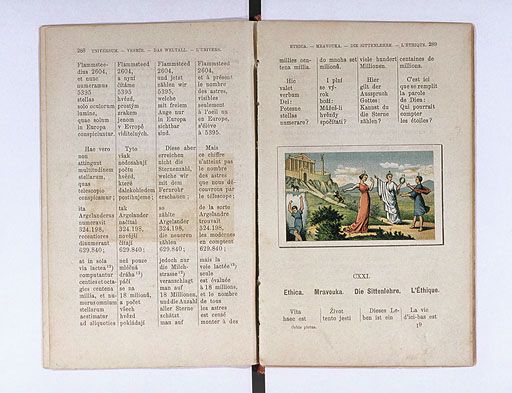 288 UNIVERSUM. — VESMÍR. — DAS WELTALL. — L'UNIVERS.
Flammstee-
dius 2604,
et nunc
numeramus
5395
stellas
solo oculorum
lumine,
quae solum
in Europa
conspiciuntur.
Flammsteed
2604,
a nyní
čítáme
5395
hvězd,
prostým
zrakem
jenom
v Evropě
viditelných.
Flammsteed
2604,
und jetzt
zählen wir
5395,
welche
mit freiem
Auge nur
in Europa
sichtbar
sind.
Flammsteed
2604,
et à présent
le nombre
des astres,
visibles
seulement
à l'oeil nu
en Europe,
s'élève
à 5395.
Haec vero
non
attingunt
multitudinem
stellarum,
quas
telescopio
conspicamur;
Tyto
však
nedosahují
počtu
hvězd,
které
dalekohledem
postihujeme;
Diese aber
erreichen
nicht die
Sternenzahl,
welche wir
mit dem
Fernrohr
erschauen;
Mais
ce chiffre
n'atteint pas
le nombre
des astres
que nous dé-
couvrons par
le télescope;
ita
Argelanderus
numeravit
324.198,
recentiores
dinumerant
629.840;
tak
Argelander
načítal
324.198,
novější
čítají
629.840;
so
zählte
Argelander
324.198,
die neueren
zählen
629.840;
de la sorte
Argelandre
trouvait
324.198,
les modernes
en comptent
629.840;
at in sola
via lactea
computantur
centies et octa-
gies centena
millia, et nu-
merus omnium
stellarum
aestimatur
ad aliquoties
než pouze
mléčná
dráha
páčí
se na
18 milionů,
a počet
všech
hvězd
pokládají
jedoch nur
die Milch-
strasse
veranschlagt
man auf
18 Millionen,
und die Anzahl
aller Sterne
schätzt
man auf
mais la
voie lactée
seule
est évaluée
à 18 millions,
et le nombre
de tous
les astres
est censé
monter à des
ETHICA. — MRAVOUKA. — DIE SITTENLEHRE. — L'ÉTHIQUE. 289
millies cen-
tena millia.
do mnoha set
milionů.
viele hundert
Millionen.
centaines de
millions.
Hic
valet
verbum
Dei:
Potesne
stellas
numerare?
I plní
se vý-
rok
boží:
Můžeš-li
hvězdy
spočítati?
Hier
gilt der
Ausspruch
Gottes:
Kannst du
die Sterne
zählen?
C'est ici
que se remplit
la parole
de Dieu:
Qui pourrait
compter
les étoiles?
CXXI.
Ethica. Mravouka. Die Sittenlehre. L'Éthique.
Vita
haec est
Život
tento jesti
Dieses Le-
ben ist ein
La vie
d'ici-bas est
Orbis pictus.
19